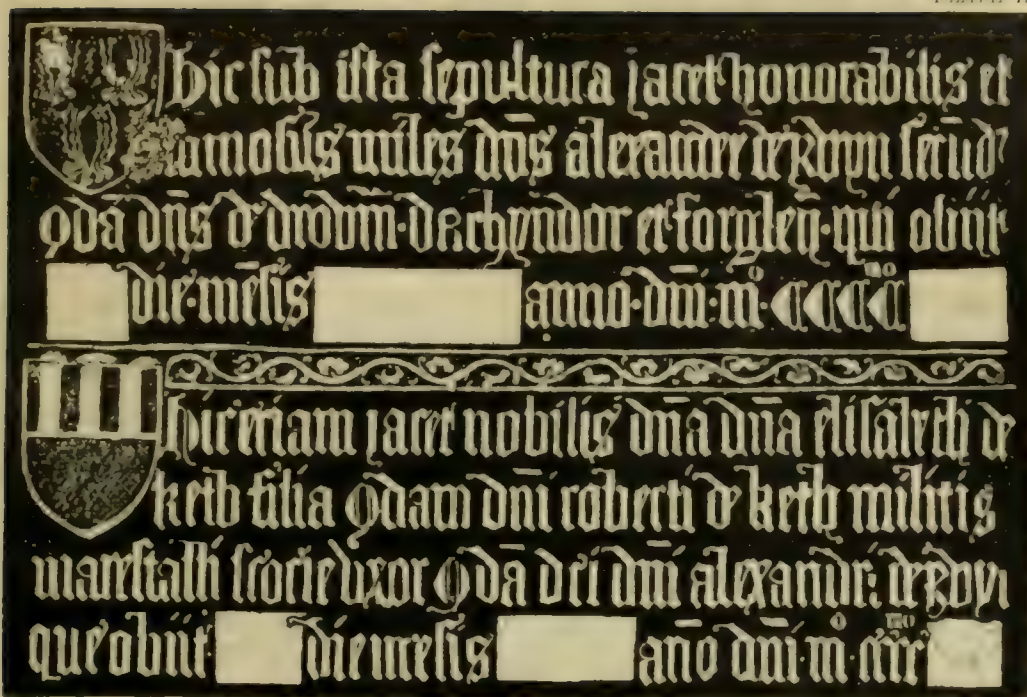 hic sub ista sepultura jacet honorabilis et
famosus miles dn̄s alexander de yrvyn secūd'
qdā dn̄s de drodm̄ · de achyndor et forglen̄ · qui obiit
die · mēsis anno · dn̄i · mͦ · cccc ͫͦ
hic etiam jacet nobilis dn̄a dn̄a elisabeth de
keth filia qdam dn̄i roberti de keth militis
marescalli scocie uxor qdā dc̄i dn̄i alexandri de yrvyn
que obiit die mesis ān̄o dn̄i · mͦ · cccc ͫͦ